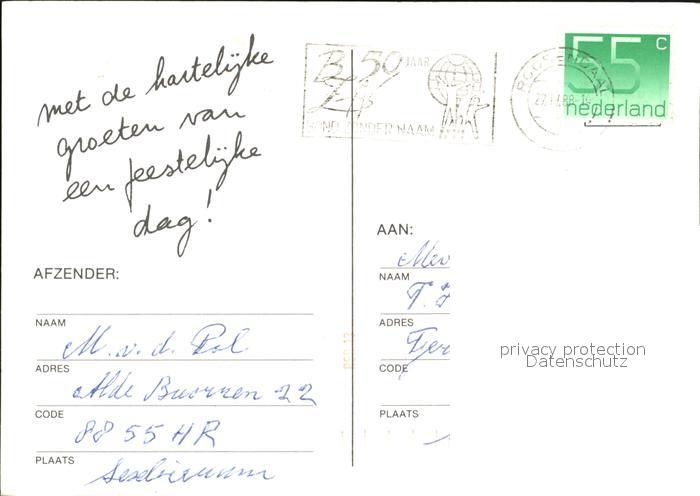 met de hartelijke
groeten van
een feestelijke
dag!
50 JAAR
BOND ZONDER NAAM
ROOSENDAAL
55 c
nederland
AFZENDER:
NAAM
M. v. d. Pol.
ADRES
Alde Buorren 22
CODE
8855 HR
PLAATS
Sexbierum
AAN:
Mev
NAAM
T.
ADRES
CODE
PLAATS
privacy protection
Datenschutz